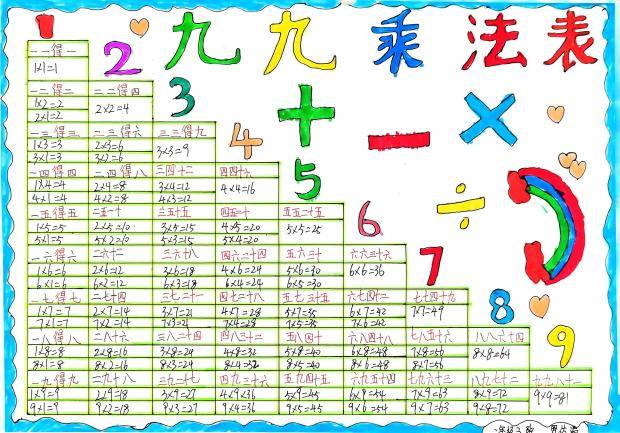 1 九九乘法表
2
3
4
5
6
7
8
9
+ − × ÷
一一得一
1×1=1
一二得二 二二得四
1×2=2 2×2=4
2×1=2
一三得三 二三得六 三三得九
1×3=3 2×3=6 3×3=9
3×1=3 3×2=6
一四得四 二四得八 三四十二 四四十六
1×4=4 2×4=8 3×4=12 4×4=16
4×1=4 4×2=8 4×3=12
一五得五 二五一十 三五十五 四五二十 五五二十五
1×5=5 2×5=10 3×5=15 4×5=20 5×5=25
5×1=5 5×2=10 5×3=15 5×4=20
一六得六 二六十二 三六十八 四六二十四 五六三十 六六三十六
1×6=6 2×6=12 3×6=18 4×6=24 5×6=30 6×6=36
6×1=6 6×2=12 6×3=18 6×4=24 6×5=30
一七得七 二七十四 三七二十一 四七二十八 五七三十五 六七四十二 七七四十九
1×7=7 2×7=14 3×7=21 4×7=28 5×7=35 6×7=42 7×7=49
7×1=7 7×2=14 7×3=21 7×4=28 7×5=35 7×6=42
一八得八 二八十六 三八二十四 四八三十二 五八四十 六八四十八 七八五十六 八八六十四
1×8=8 2×8=16 3×8=24 4×8=32 5×8=40 6×8=48 7×8=56 8×8=64
8×1=8 8×2=16 8×3=24 8×4=32 8×5=40 8×6=48 8×7=56
一九得九 二九十八 三九二十七 四九三十六 五九四十五 六九五十四 七九六十三 八九七十二 九九八十一
1×9=9 2×9=18 3×9=27 4×9=36 5×9=45 6×9=54 7×9=63 8×9=72 9×9=81
9×1=9 9×2=18 9×3=27 9×4=36 9×5=45 9×6=54 9×7=63 9×8=72